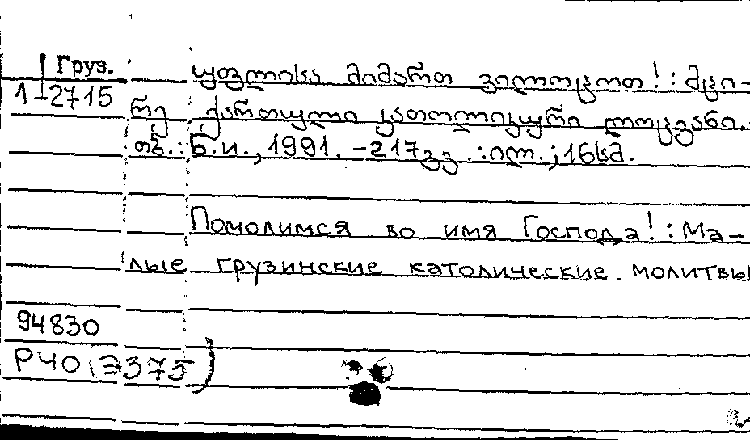 Груз.
1-2715
უფლისა მიმართ ვილოცოთ! : მცი-
რე ქართული კათოლიკური ლოცვანი. -
თბ. : Б.и., 1991. - 217გვ. : ილ. ; 16სმ.
Помолимся во имя Господа! : Ма-
лые грузинские католические молитвы
94830
РЧО (Э375)